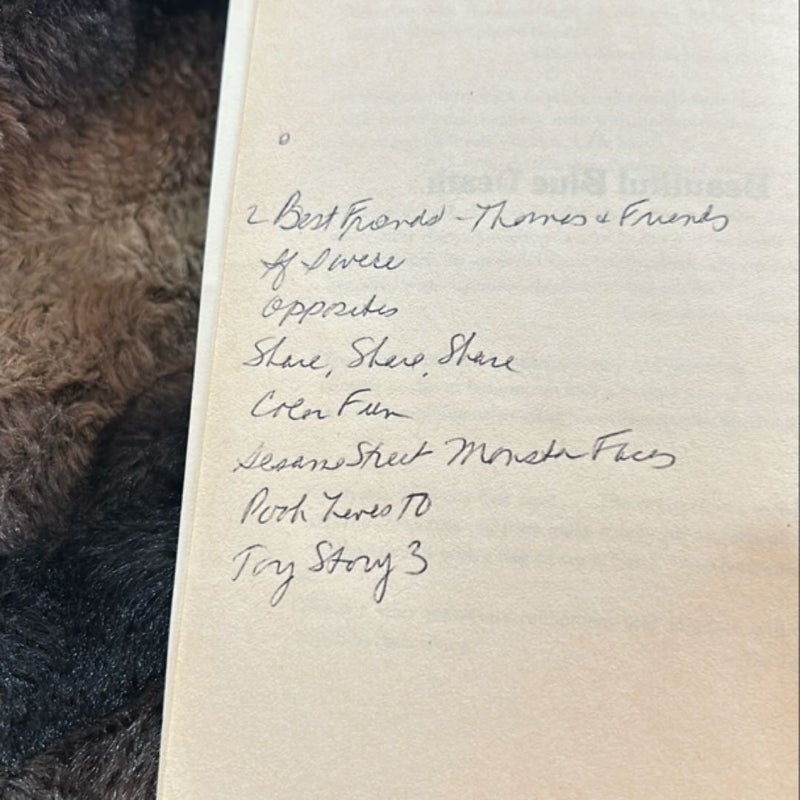 o
2 Best Friends - Thomas & Friends
If I were
Opposites
Share, Share, Share
Color Fun
Sesame Street Monster Faces
Pooh Loves TO
Toy Story 3
Beautiful Blue Death